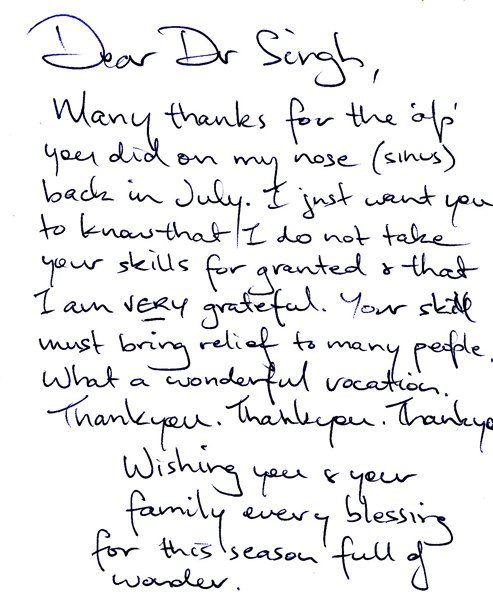 Dear Dr Singh,
Many thanks for the 'op'
you did on my nose (sinus)
back in July. I just want you
to know that I do not take
your skills for granted & that
I am VERY grateful. Your skill
must bring relief to many people.
What a wonderful vocation.
Thankyou. Thankyou. Thankyo
Wishing you & your
family every blessing
for this season full of
wonder.